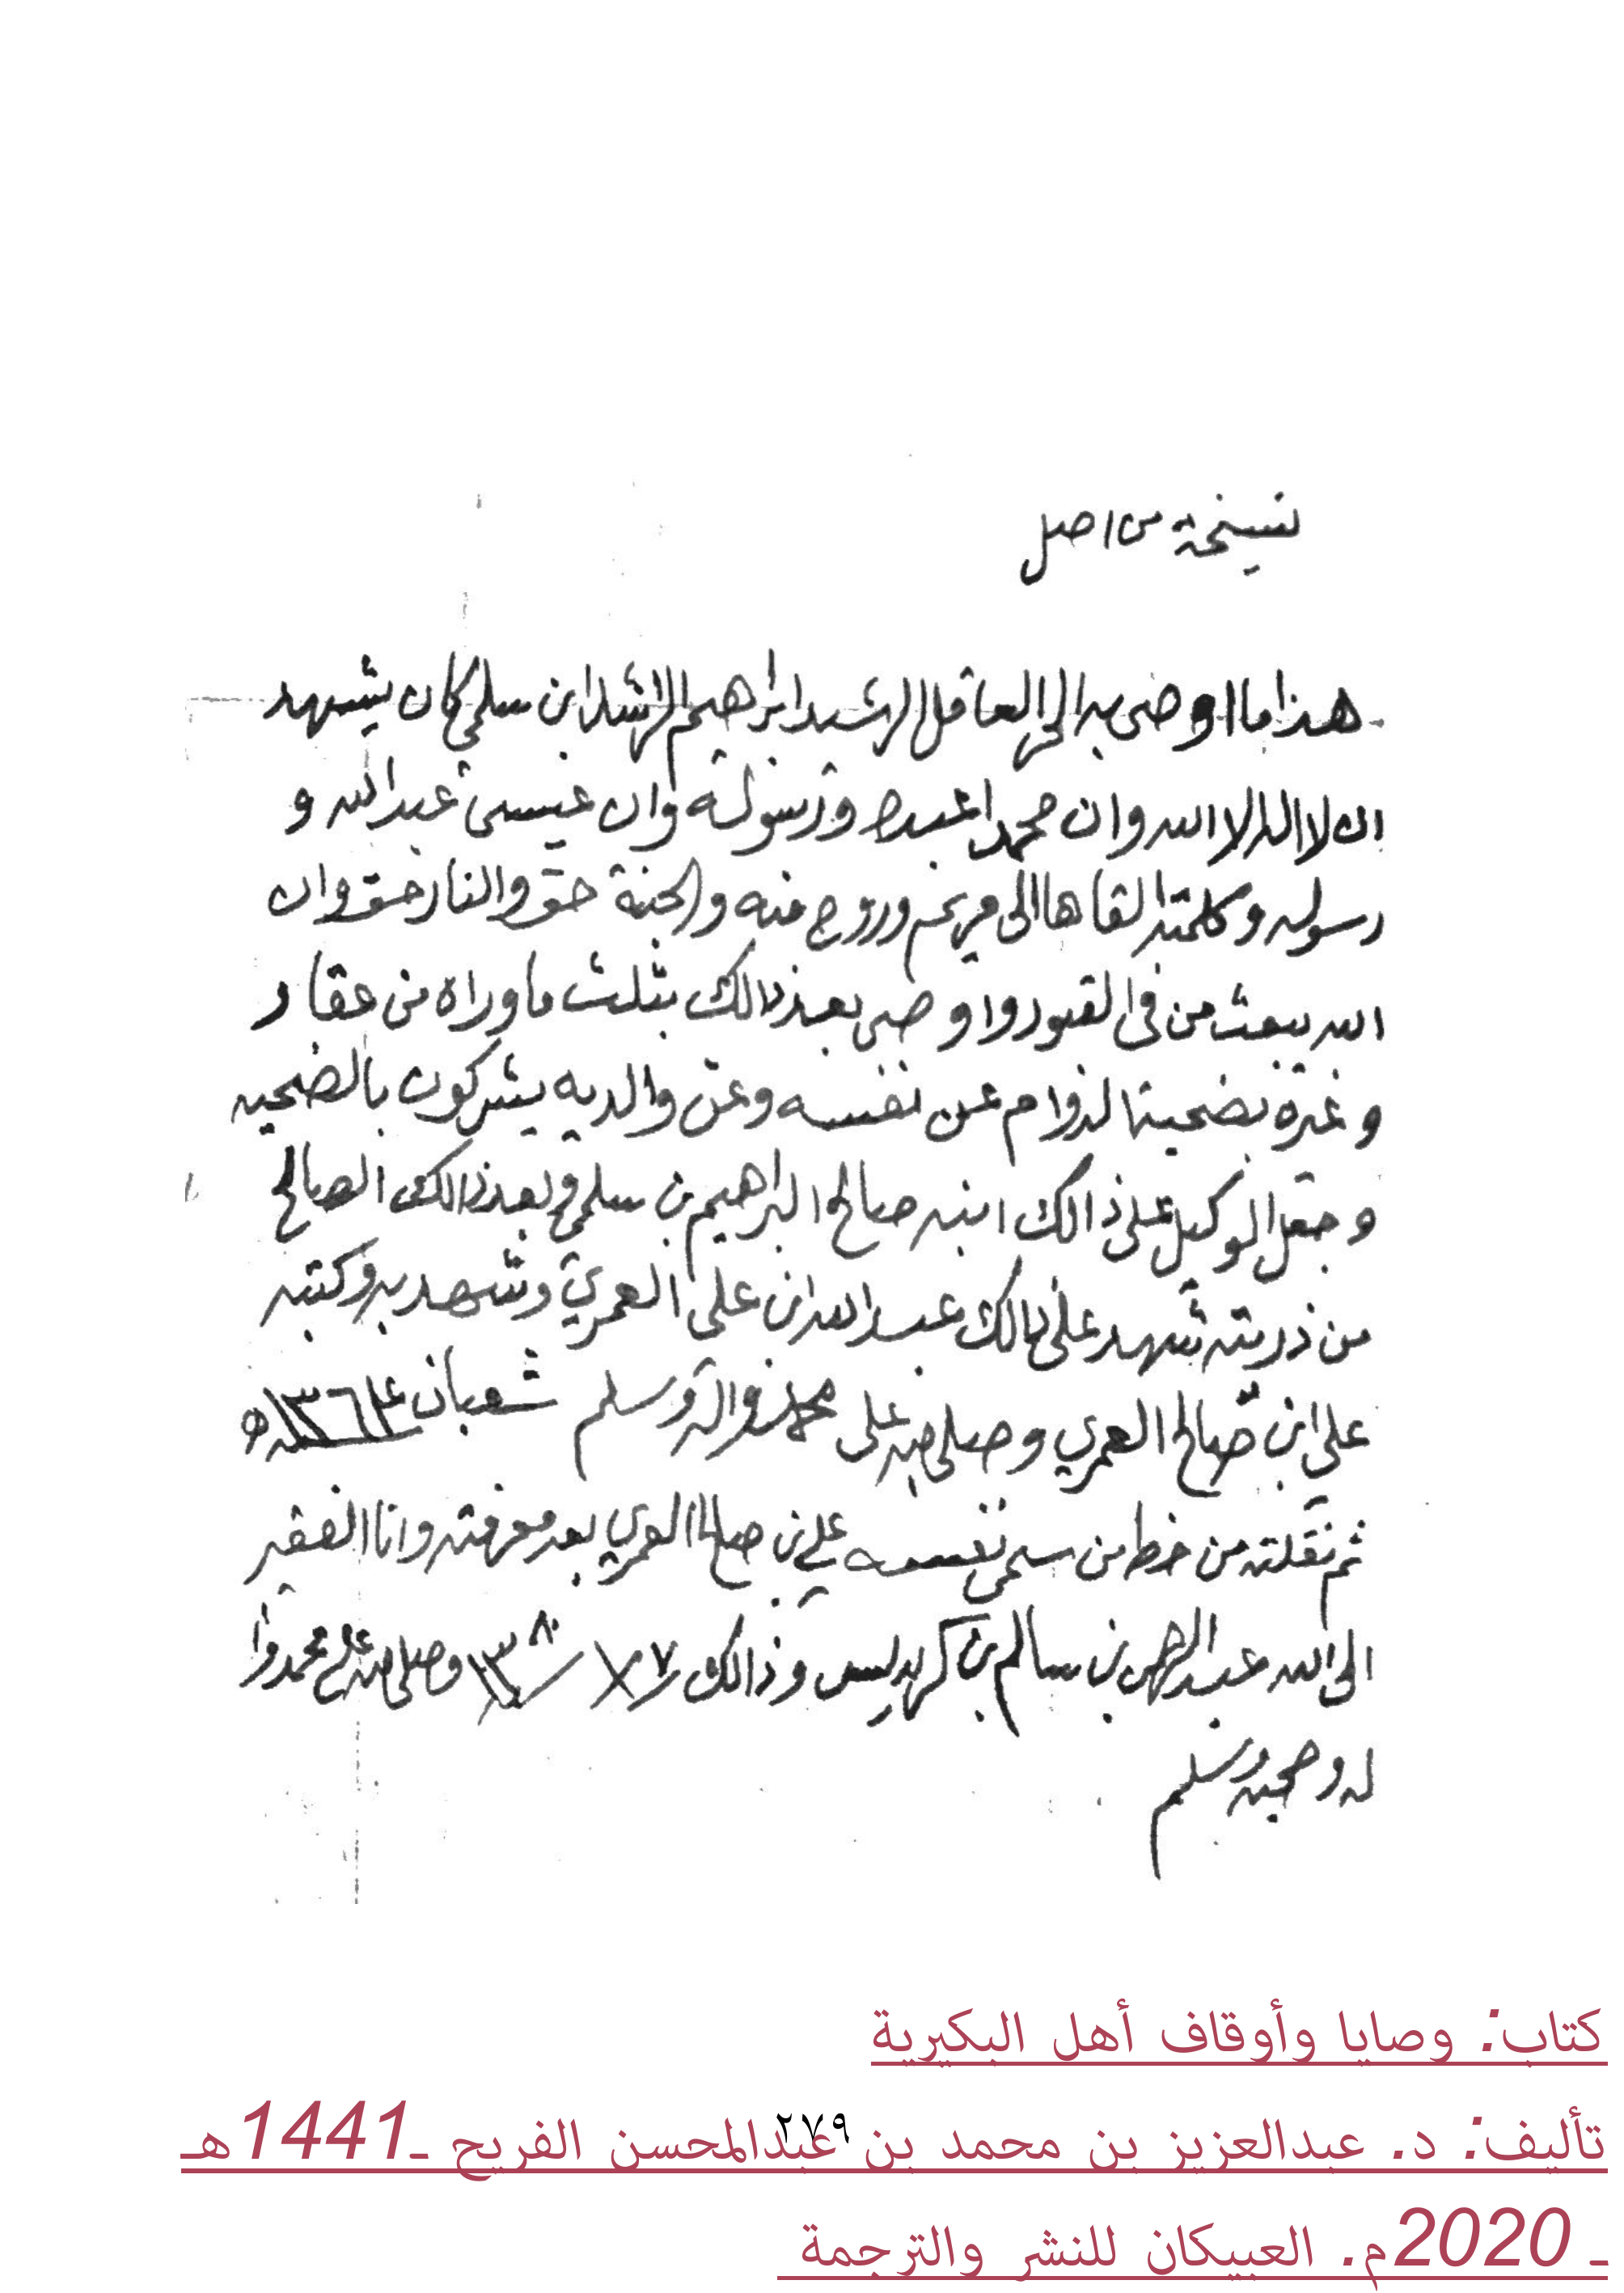 نسخة من اصل
هذا ما اوصى به الحر العاقل الرشيد ابراهيم الراشد ابن سلمي كان يشهد
ان لا اله الا الله وان محمدا عبده ورسوله وان عيسى عبد الله و
رسوله وكلمته القاها الى مريم وروح منه والجنة حق والنار حق وان
الله يبعث من في القبور واوصى بعد ذالك بثلث ما وراه من عقار
و غيره بضحية الدوام عن نفسه وعن والديه يشركون بالضحيه
وجعل الوكيل على ذالك ابنه صالح البراهيم بن سلمي وبعد ذالك الصالح
من ذريته شهد على ذالك عبد الله ابن علي العمري وشهد به وكتبه
علي ابن صالح العمري وصلى الله على محمد واله وسلم شعبان ١٣٦٤ سنه ه
ثم نقلته من خط من سمى نفسه علي بن صالح العمري بعد معرفته وانا الفقير
الى الله عبد الرحمن بن سالم بن كريديس وذالك ٧ / ٨ / وصلى الله على محمد وا
له وصحبه وسلم
كتاب: وصايا وأوقاف أهل البكيرية
٢٧٩
تأليف: د. عبدالعزيز بن محمد بن عبدالمحسن الفريح ـ1441هـ
ـ 2020م. العبيكان للنشر والترجمة